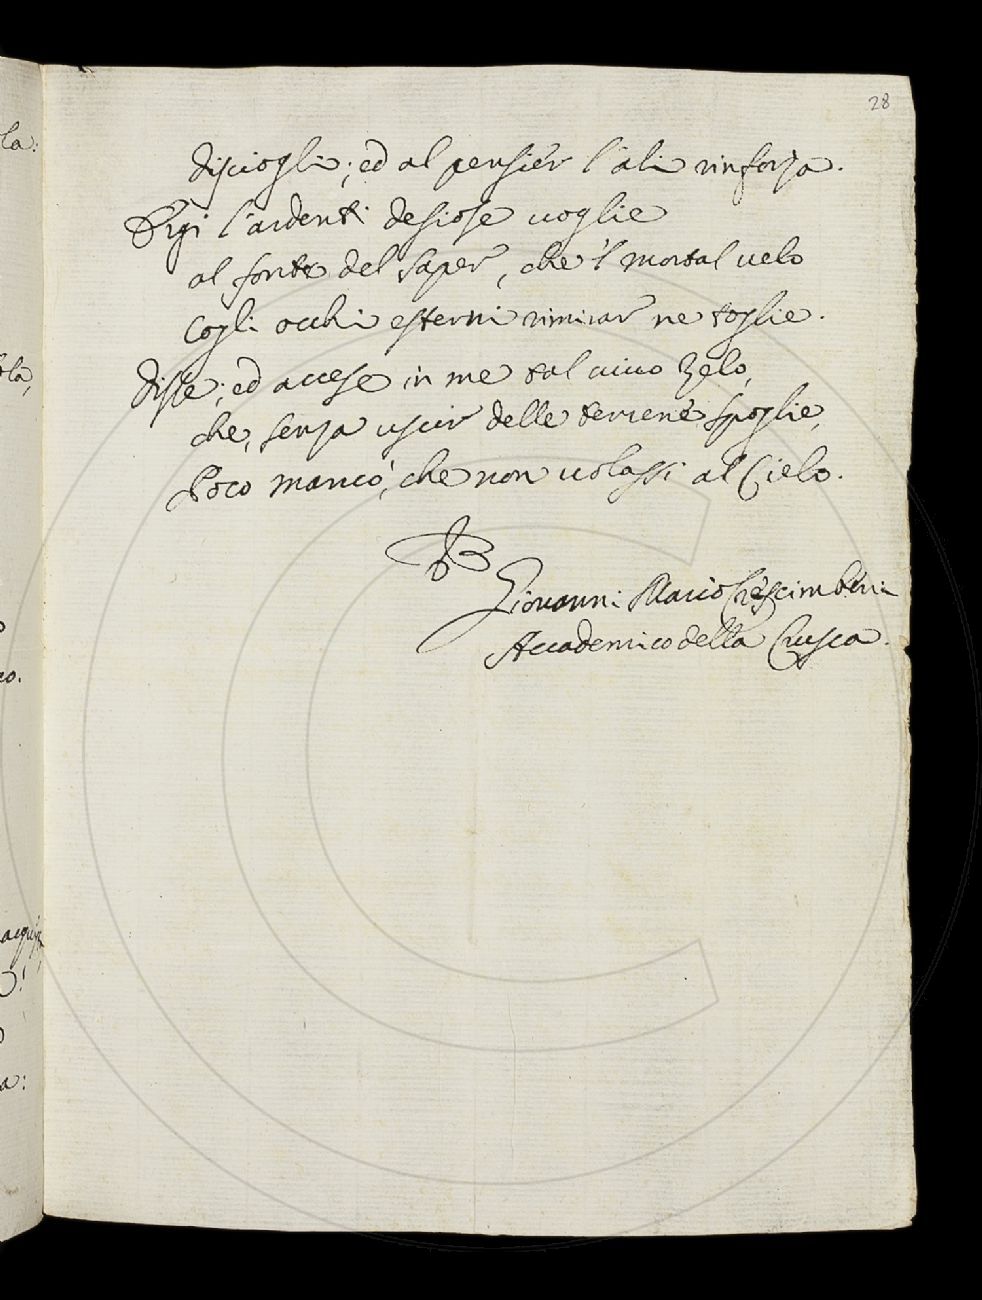 28
disciogli; ed al pensier l'ali rinforza.
Ergi l'ardenti desiose uoglie
al fonte del saper, che 'l mortal uelo
Cogli occhi esterni rimirar ne toglie.
disse; ed accese in me tal uiuo Zelo,
che, senza uscir delle terrene spoglie,
Poco mancò, che non uolassi al Cielo.
Giovanni Mario Crescimbeni
Accademico della Crusca.
la:
ola,
o
co.
o!
o
a: